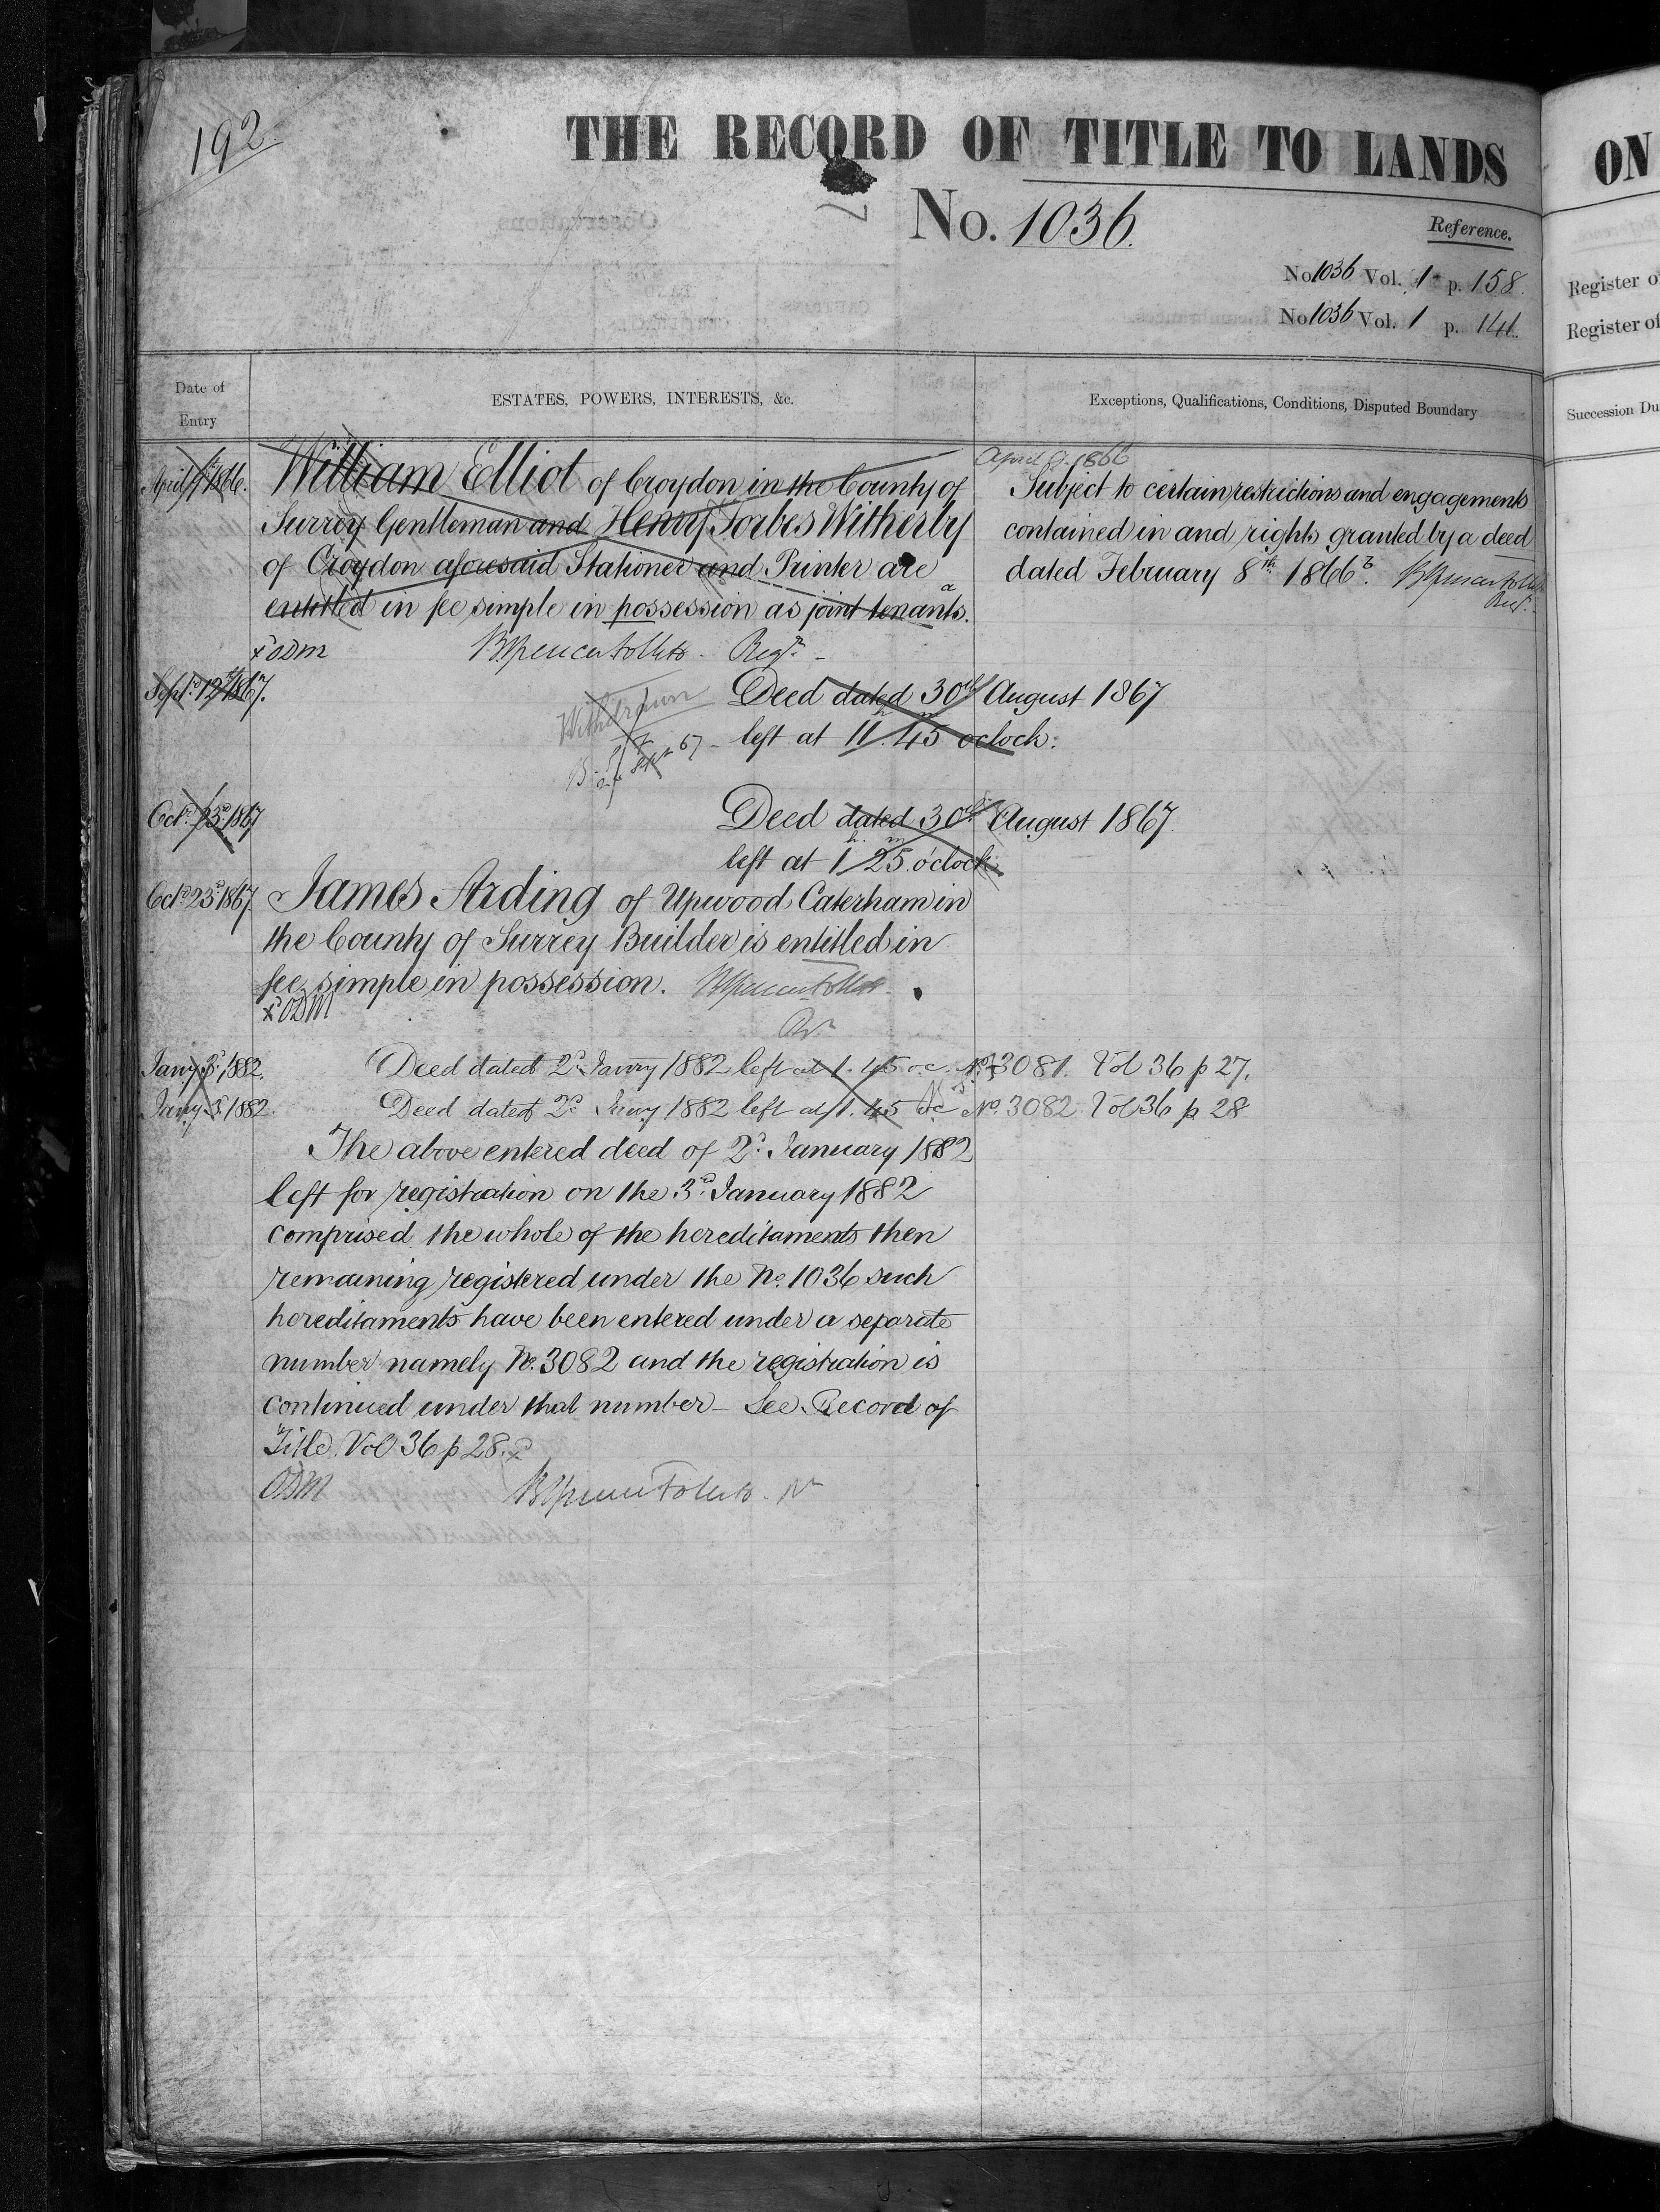 192.
THE RECORD OF TITLE TO LANDS
No. 1036.
Reference.
No 1036 Vol. 1 p. 158.
No 1036 Vol. 1 p. 141.
Date of Entry
ESTATES, POWERS, INTERESTS, &c.
Exceptions, Qualifications, Conditions, Disputed Boundary
April 9th 1866.
William Elliot of Croydon in the County of
Surrey Gentleman and Henry Forbes Witherby
of Croydon aforesaid Stationer and Printer are
entitled in fee simple in possession as joint tenants.
April 9. 1866
Subject to certain restrictions and engagements
contained in and rights granted by a deed
dated February 8th 1866.
Regr.
ODM
Regr.
Septr. 12th 1867.
Withdrawn
Sept 67
Deed dated 30th August 1867
left at 11h. 45m oclock.
Octr. 23d. 1867
Deed dated 30th August 1867.
left at 1h. 25m o'clock.
Octr 23d. 1867
James Arding of Upwood Caterham in
the County of Surrey Builder is entitled in
fee simple in possession.
ODM
Jany 3d. 1882.
Deed dated 2d. Janry 1882 left at 1.45 o.c. No. 3081. Vol 36 p 27.
Jany 3. 1882.
Deed dated 2d Jany 1882 left at 1.45 oc No. 3082 Vol 36 p 28
The above entered deed of 2d. January 1882
left for registration on the 3rd. January 1882
comprised the whole of the hereditaments then
remaining registered under the No. 1036 such
hereditaments have been entered under a separate
number namely No. 3082 and the registration is
continued under that number – See Record of
Title Vol 36 p 28.
ODM
ON
Register o
Register of
Succession Du